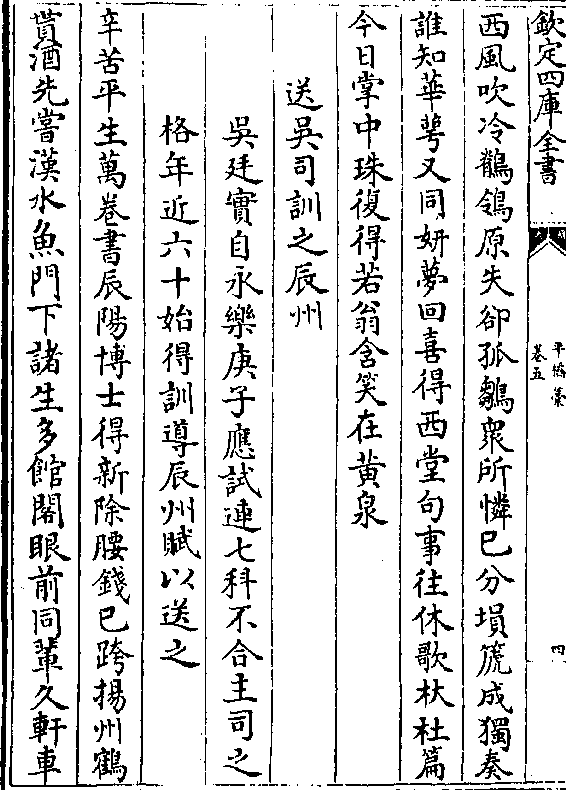 欽定四庫全書
平橋藁
卷五
四
西風吹冷鶺鴒原失卻孤鶵衆所憐已分塤箎成獨奏
誰知華萼又同妍夢回喜得西堂句事往休歌杕杜篇
今日掌中珠復得若翁含笑在黄泉
送吳司訓之辰州
吳廷實自永樂庚子應試連七科不合主司之
格年近六十始得訓導辰州賦以送之
辛苦平生萬卷書辰陽博士得新除腰錢已跨揚州鶴
貰酒先嘗漢水魚門下諸生多館閣眼前同輩久軒車